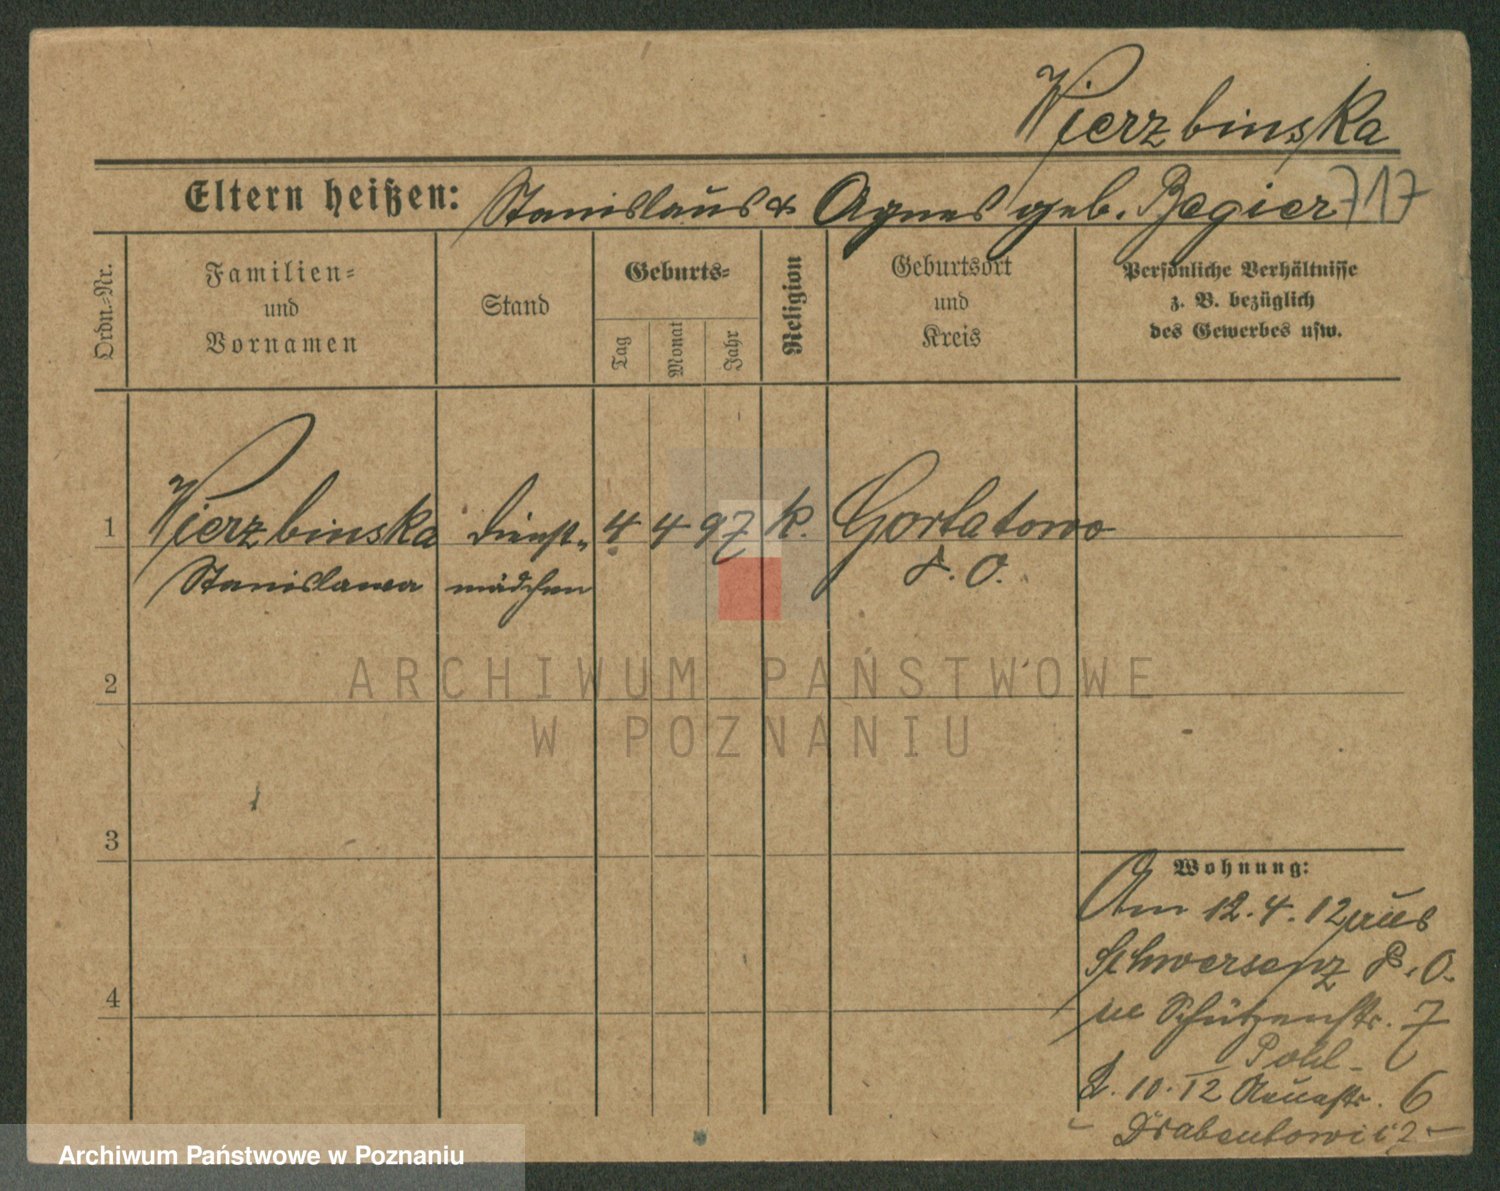 Wierzbinska
Eltern heißen: Stanislaus & Agnes geb. Begier 717
Ordn.-Nr.
Familien-
und
Vornamen
Stand
Geburts-
Tag
Monat
Jahr
Religion
Geburtsort
und
Kreis
Persönliche Verhältnisse
z. B. bezüglich
des Gewerbes usw.
1 Wierzbinska Dienst- 4 4 97 k. Gortatowo
Stanislawa mädchen P. O.
2
3
4
Wohnung:
Am 12.4.12 aus
Schwersenz P. O.
n Schützenstr. 7
Pohl
2.10.12 6
Drabentowicz
ARCHIWUM PAŃSTWOWE
W POZNANIU
Archiwum Państwowe w Poznaniu